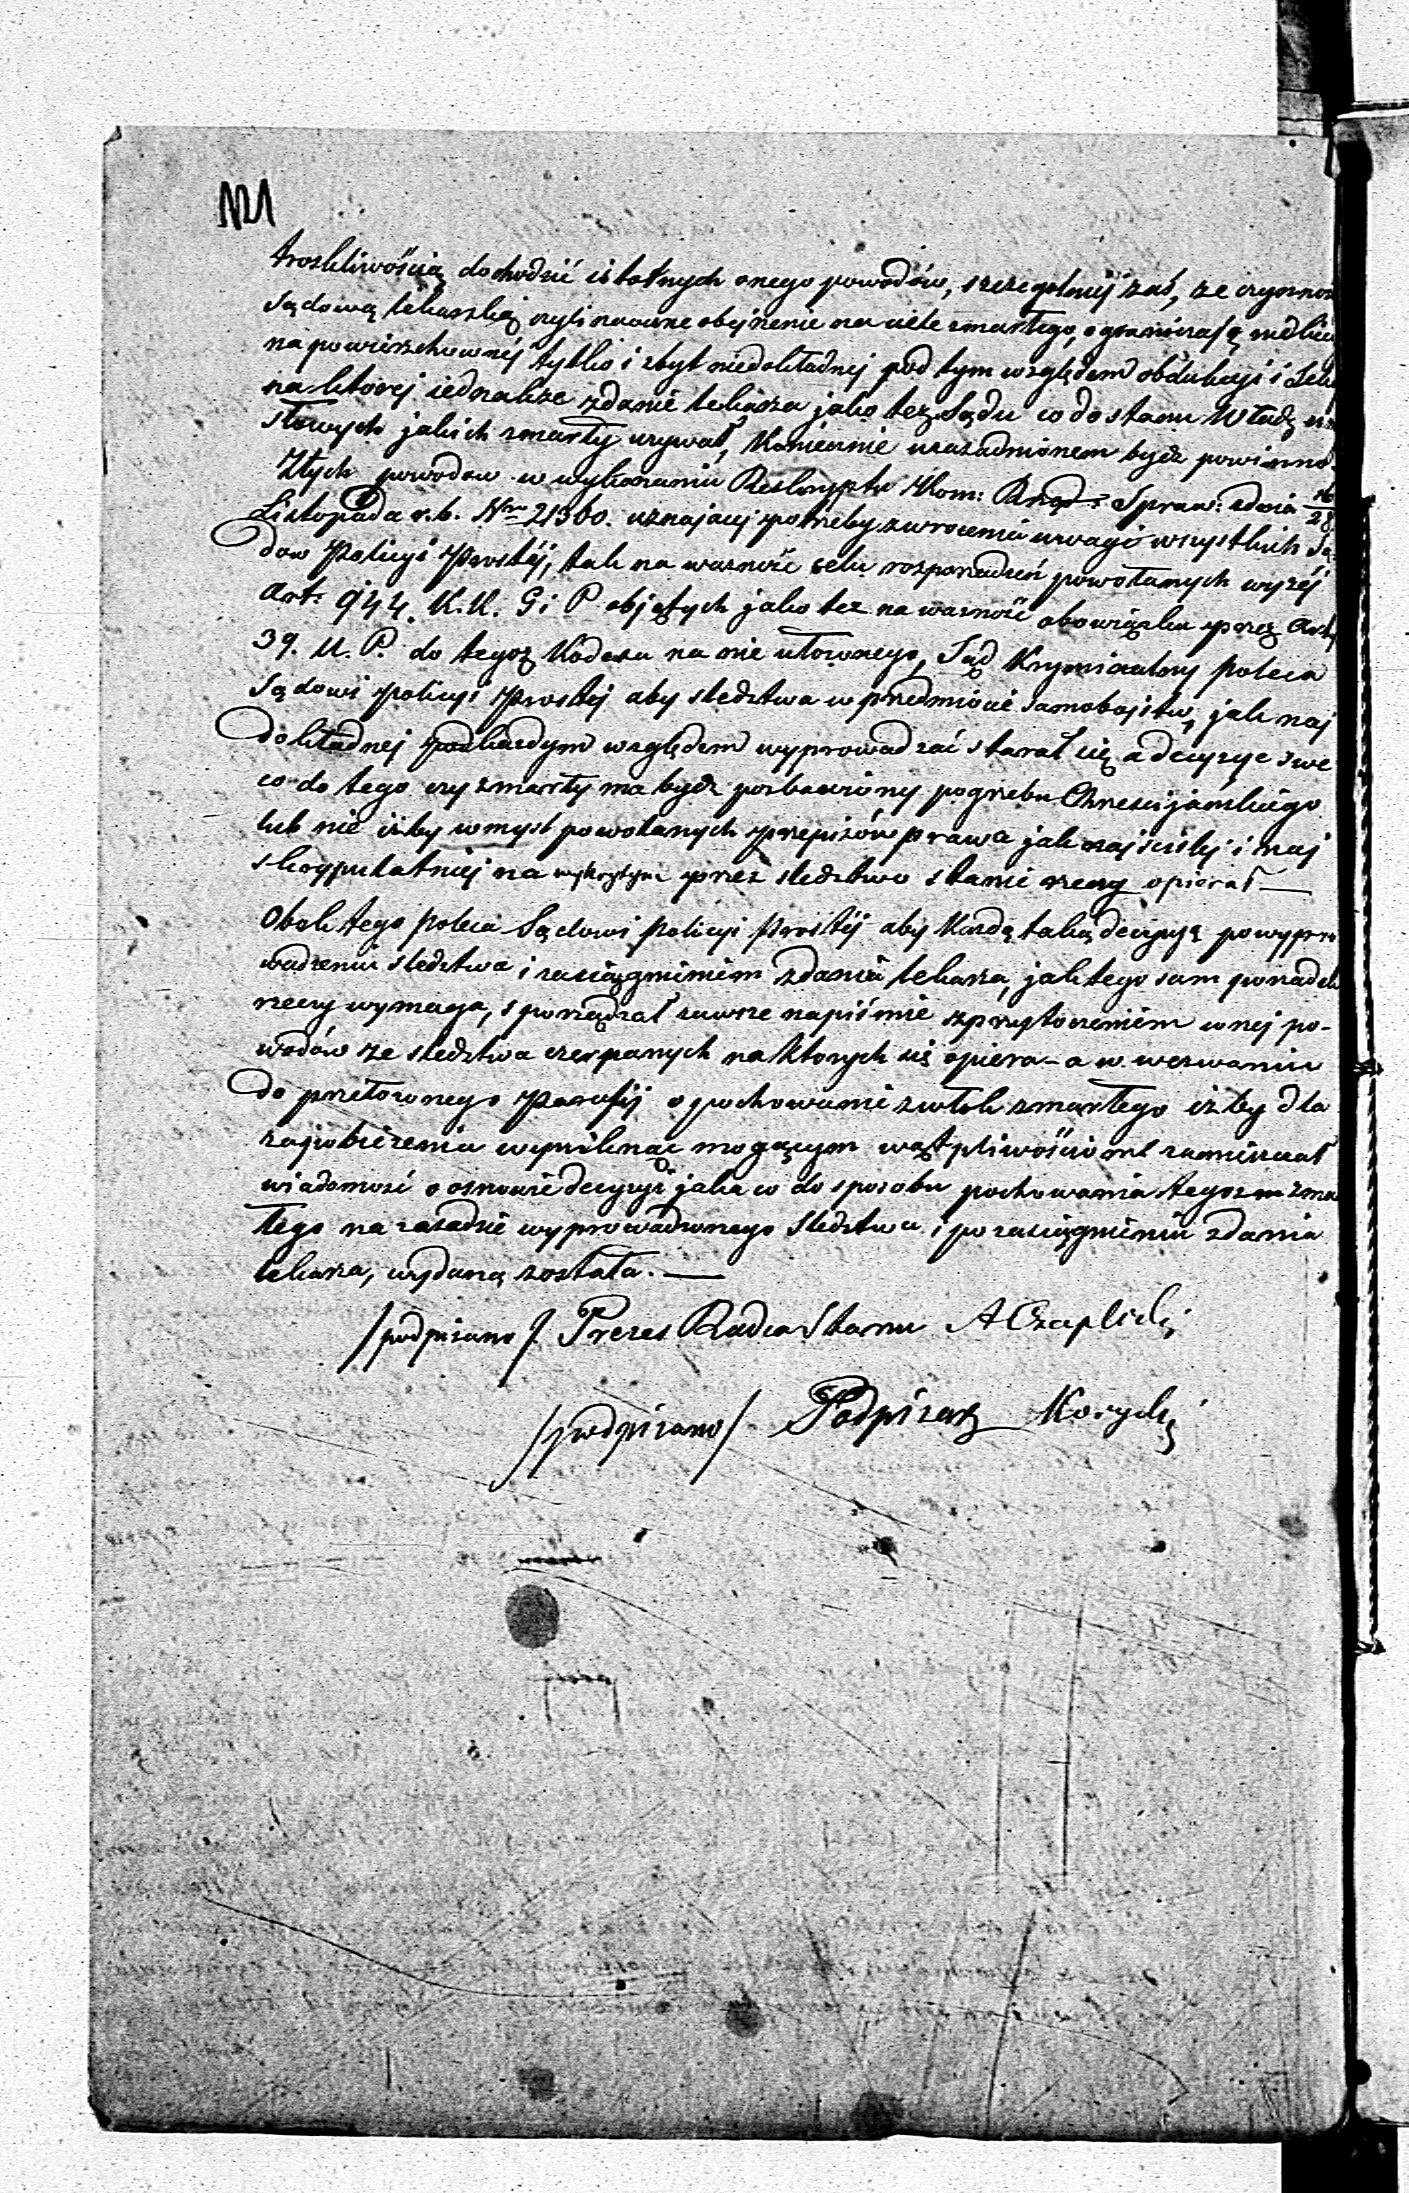 troskliwością dochodzić istotnych onego powodów, szczegolniej zaś, ze czynność
Sądową lekarską czyli naoczne obejrzenie na ciele zmartego, ograniczaią
na powierzchownéj tylko i zbyt niedokładnej pod tym względem obdukcyi i
na ktorej iednakże zdanie lekarza jako też Sądu co do stanu Władz
słowych jakich zmarły uzywał, Koniecznie uzasadnionem bydz powinno.
Ztych powodow w wykonaniu Reskryptu Kom: Rząd: Spraw: zdnia 16/28
Listopada r.b. Nro 21360. uznającej potrzebę zwrocenia uwagi wszystkich Są-
dow Policyi Prostéj, tak na wazność celu rozporządzeń powołanych wyzéj
Art: 944. K.K. G i P objętych jako tez na wazność obowiązku przez Art,
39. U. P. do tegoz Kodexu na nie włożonego, Sąd Kryminalny poleca
Sądowi Policyi Prostej aby sledztwa w przedmiocie samobojstw, jak naj
dokładnej podkazdym względem wyprowadzać starał się a decyzye swe
co do tego czy zmarły ma bydz pozbawiony pogrzebu Chrzescijanskiego
lub nie iżby wmysl powołanych przepisów prawa jak najscislej i naj
skrypulatniej na wykrytym przez sledztwo stanie rzeczy opierał —
Obok tego poleca Sądowi Policyi Prostéj aby Kazdą taką decyzyą po wypro
wadzeniu sledztwa i zasiągnieniem zdania lekarza, jak tego sam porządek
rzeczy wymaga, sporządzał zawsze napiśmie zprzytoczeniem wnej po-
wodów ze sledztwa czerpanych na ktorych się opiera – a w wezwaniu
do przełozonego Parafij o pochowanie zwłok zmarłego izby dla
zapobiezenia wyniknąc mogącym wątpliwościom zamieszczał
wiadomość o osnowie decyzyi jaka co do sposobu pochowania tegoz zmar
łego na zasadzie wyprowadzonego Sledztwa i po zasiągnieniu zdania
lekarza, wydaną została. —
/podpisano/ Prezes Radca Stanu A Czaplicki
/podpisano/ Podpisarz